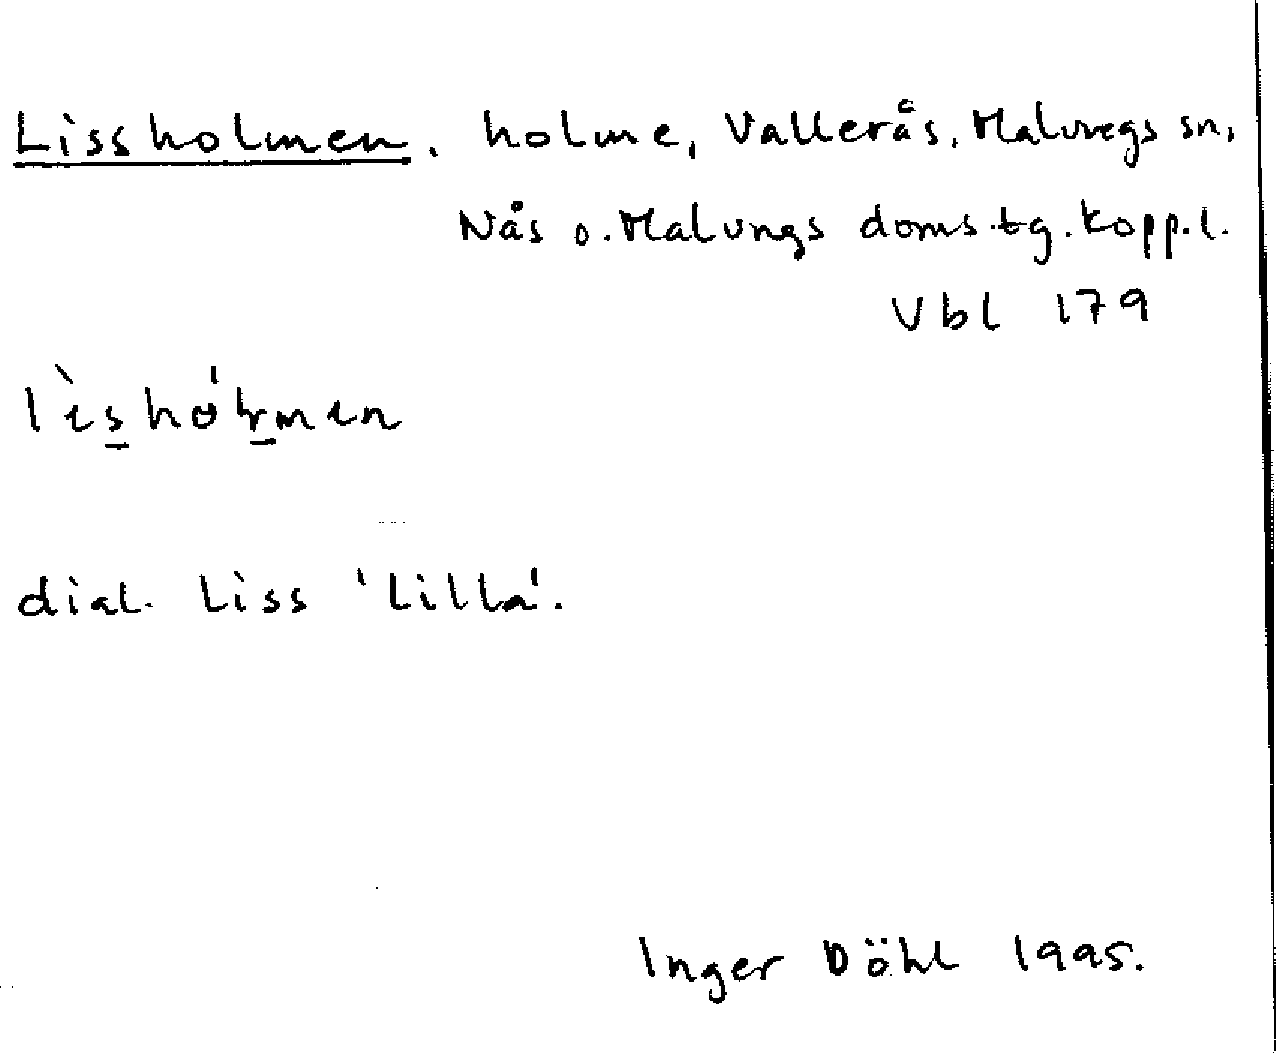 Lissholmen, holme, Vallerås, Malungs sn,
Nås o. Malungs doms.tg. Kopp.l.
Vbl 179
dial. Liss 'Lilla'.
Inger Döhl 1995.